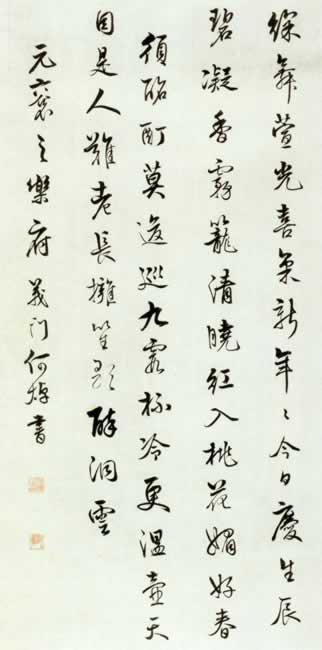 綵舞萱光喜氣新年〻今日慶生辰
碧凝香霧籠清曉紅入桃花媚好春
須酩酊莫逡巡九霞杯冷更溫壺天
自是人難老長擁笙歌醉洞雲
元裕之樂府 義門何焯書